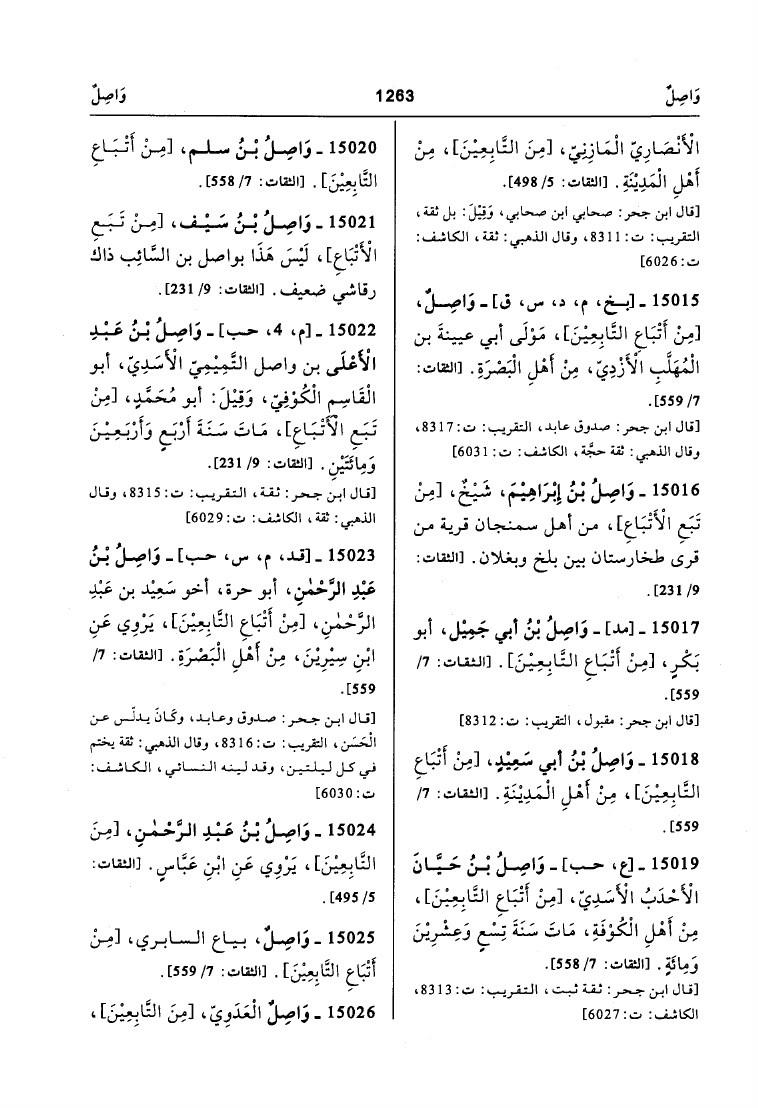 وَاصِلٌ
1263
وَاصِلٌ
الْأَنْصَارِيّ الْمَازِنِيّ، [مِنَ التَّابِعِيْنَ]، مِنْ
أَهْلِ الْمَدِيْنَةِ. [الثقات: 5/ 498].
[قال ابن حجر: صحابي ابن صحابي، وَقِيْلَ: بل ثقة،
التقريب: ت: 8311، وقال الذهبي: ثقة، الكاشف:
ت: 6026]
15015 ـ [بخ، م، د، س، ق] ـ وَاصِلٌ،
[مِنْ أَتْبَاعِ التَّابِعِيْنَ]، مَوْلَى أبي عيينة بن
الْمُهَلَّبِ الْأَزْدِيّ، مِنْ أَهْلِ الْبَصْرَةِ. [الثقات:
7/ 559].
[قال ابن حجر: صدوق عابد، التقريب: ت: 8317،
وقال الذهبي: ثقة حجَّة، الكاشف: ت: 6031]
15016 ـ وَاصِلُ بْنُ إِبْرَاهِيْمَ، شَيْخٌ، [مِنْ
تَبَعِ الْأَتْبَاعِ]، من أهل سمنجان قرية من
قرى طخارستان بين بلخ وبغلان. [الثقات:
9/ 231].
15017 ـ [مد] ـ وَاصِلُ بْنُ أبي جَمِيْل، أبو
بَكْرٍ، [مِنْ أَتْبَاعِ التَّابِعِيْنَ]. [الثقات: 7/
559].
[قال ابن حجر: مقبول، التقريب: ت: 8312]
15018 ـ وَاصِلُ بْنُ أبي سَعِيْدٍ، [مِنْ أَتْبَاعِ
التَّابِعِيْنَ]، مِنْ أَهْلِ الْمَدِيْنَةِ. [الثقات: 7/
559].
15019 ـ [ع، حب] ـ وَاصِلُ بْنُ حَيَّانَ
الْأَحْدَبُ الْأَسَدِيّ، [مِنْ أَتْبَاعِ التَّابِعِيْنَ]،
مِنْ أَهْلِ الْكُوْفَةِ، مَاتَ سَنَةَ تِسْعٍ وَعِشْرِيْنَ
وَمِائَةٍ. [الثقات: 7/ 558].
[قال ابن حجر: ثقة ثبت، التقريب: ت: 8313،
الكاشف: ت: 6027]
15020 ـ وَاصِلُ بْنُ سلم، [مِنْ أَتْبَاعِ
التَّابِعِيْنَ]. [الثقات: 7/ 558].
15021 ـ وَاصِلُ بْنُ سَيْف، [مِنْ تَبَعِ
الْأَتْبَاعِ]، لَيْسَ هَذَا بواصل بن السَّائِب ذاك
رقاشي ضعيف. [الثقات: 9/ 231].
15022 ـ [م، 4، حب] ـ وَاصِلُ بْنُ عَبْدِ
الْأَعْلَى بن واصل التَّمِيْمِيّ الْأَسَدِيّ، أبو
الْقَاسِمِ الْكُوْفِيّ، وَقِيْلَ: أبو مُحَمَّدٍ، [مِنْ
تَبَعِ الْأَتْبَاعِ]، مَاتَ سَنَةَ أَرْبَعٍ وَأَرْبَعِيْنَ
وَمِائَتَيْنِ. [الثقات: 9/ 231].
[قال ابن حجر: ثقة، التقريب: ت: 8315، وقال
الذهبي: ثقة، الكاشف: ت: 6029]
15023 ـ [قد، م، س، حب] ـ وَاصِلُ بْنُ
عَبْدِ الرَّحْمٰنِ، أبو حرة، أخو سَعِيْدِ بن عَبْدِ
الرَّحْمٰنِ، [مِنْ أَتْبَاعِ التَّابِعِيْنَ]، يَرْوِي عَنِ
ابْنِ سِيْرِيْنَ، مِنْ أَهْلِ الْبَصْرَةِ. [الثقات: 7/
559].
[قال ابن حجر: صدوق وعابد، وكَانَ يدلّس عن
الْحَسَنِ، التقريب: ت: 8316، وقال الذهبي: ثقة يختم
في كل ليلتين، وقد لينه النسائي، الكاشف:
ت: 6030]
15024 ـ وَاصِلُ بْنُ عَبْدِ الرَّحْمٰنِ، [مِنَ
التَّابِعِيْنَ]، يَرْوِي عَنِ ابْنِ عَبَّاسٍ. [الثقات:
5/ 495].
15025 ـ وَاصِلٌ، بياع السابري، [مِنْ
أَتْبَاعِ التَّابِعِيْنَ]. [الثقات: 7/ 559].
15026 ـ وَاصِلٌ الْعَدَوِيّ، [مِنَ التَّابِعِيْنَ]،